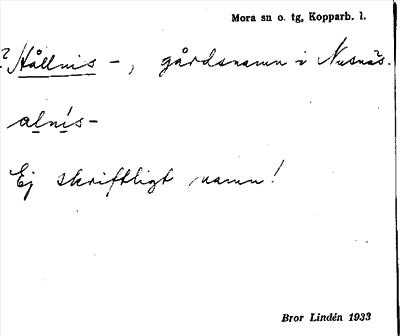 Mora sn o. tg, Kopparb. l.
? Hållnis -, gårdsnamn i Nusnäs.
alnís-
Ej skriftligt namn!
Bror Lindén 1933